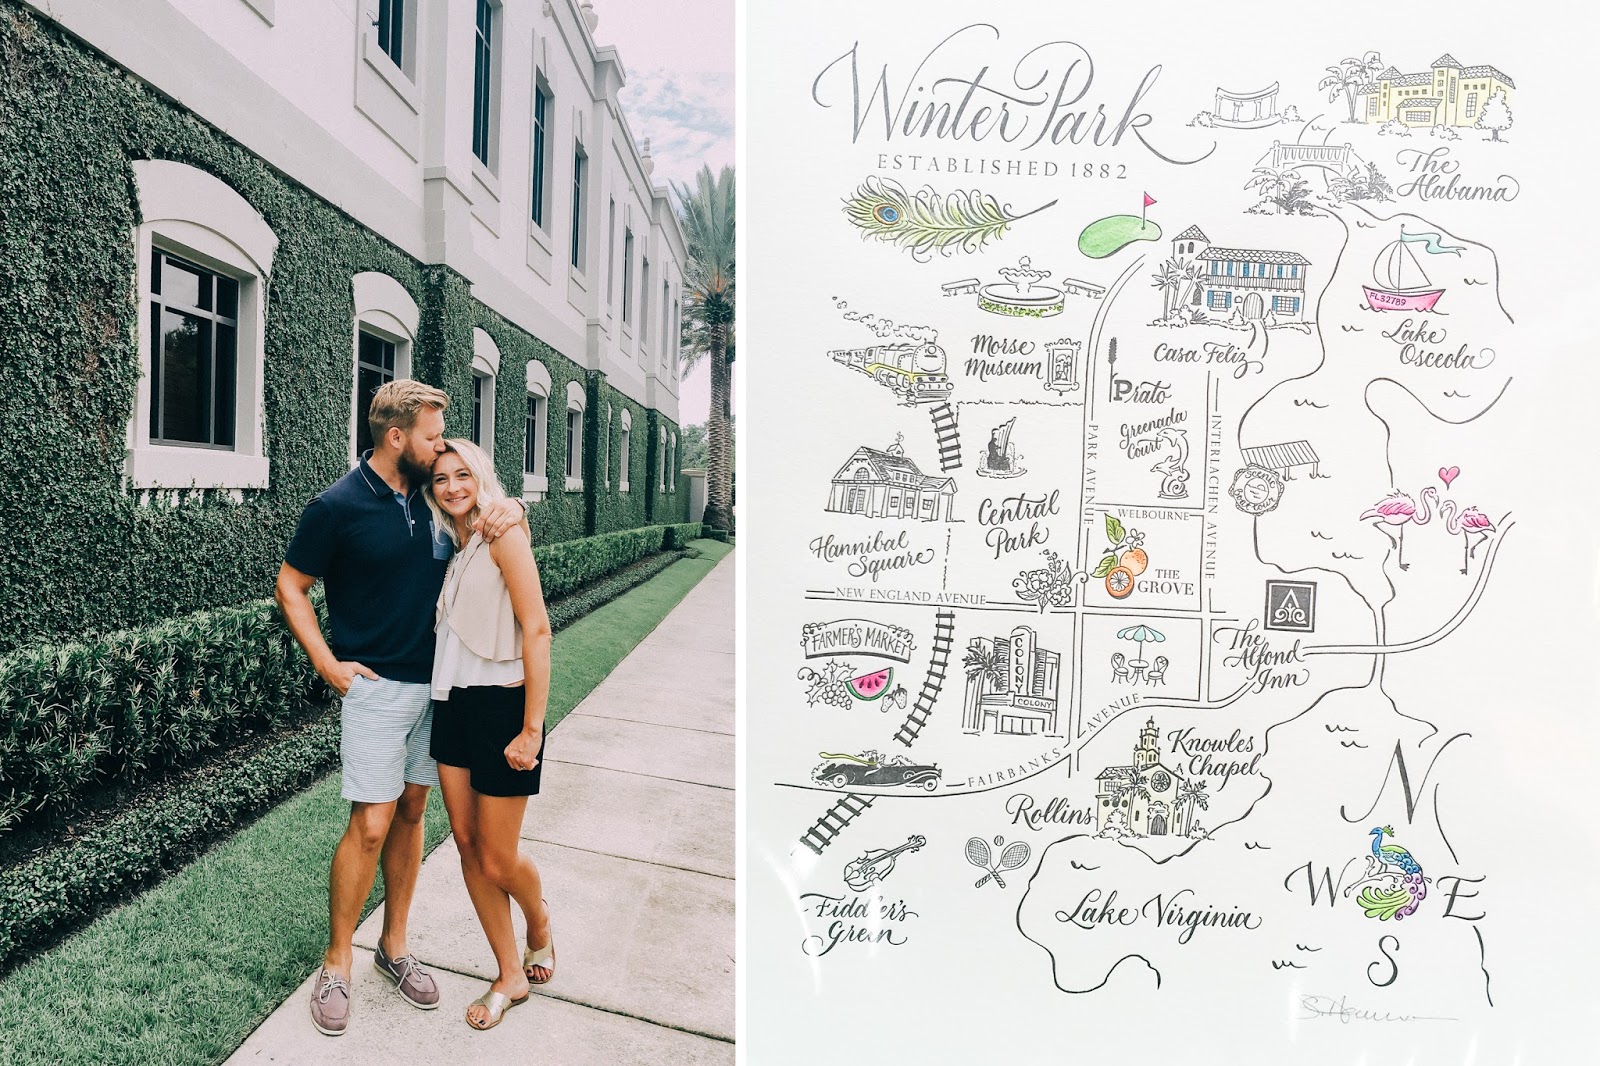 Winter Park
ESTABLISHED 1882
The
Alabama
FL32789
Lake
Osceola
Morse
Museum
Casa Feliz
Prato
Greenada
Court
PARK AVENUE
INTERLACHEN AVENUE
Scenic
Boat Tour
Central
Park
WELBOURNE
Hannibal
Square
THE
GROVE
NEW ENGLAND AVENUE
FARMER'S MARKET
COLONY
COLONY
The
Alfond
Inn
FAIRBANKS AVENUE
Knowles
Chapel
Rollins
Fiddler's
Green
Lake Virginia
N
W E
S